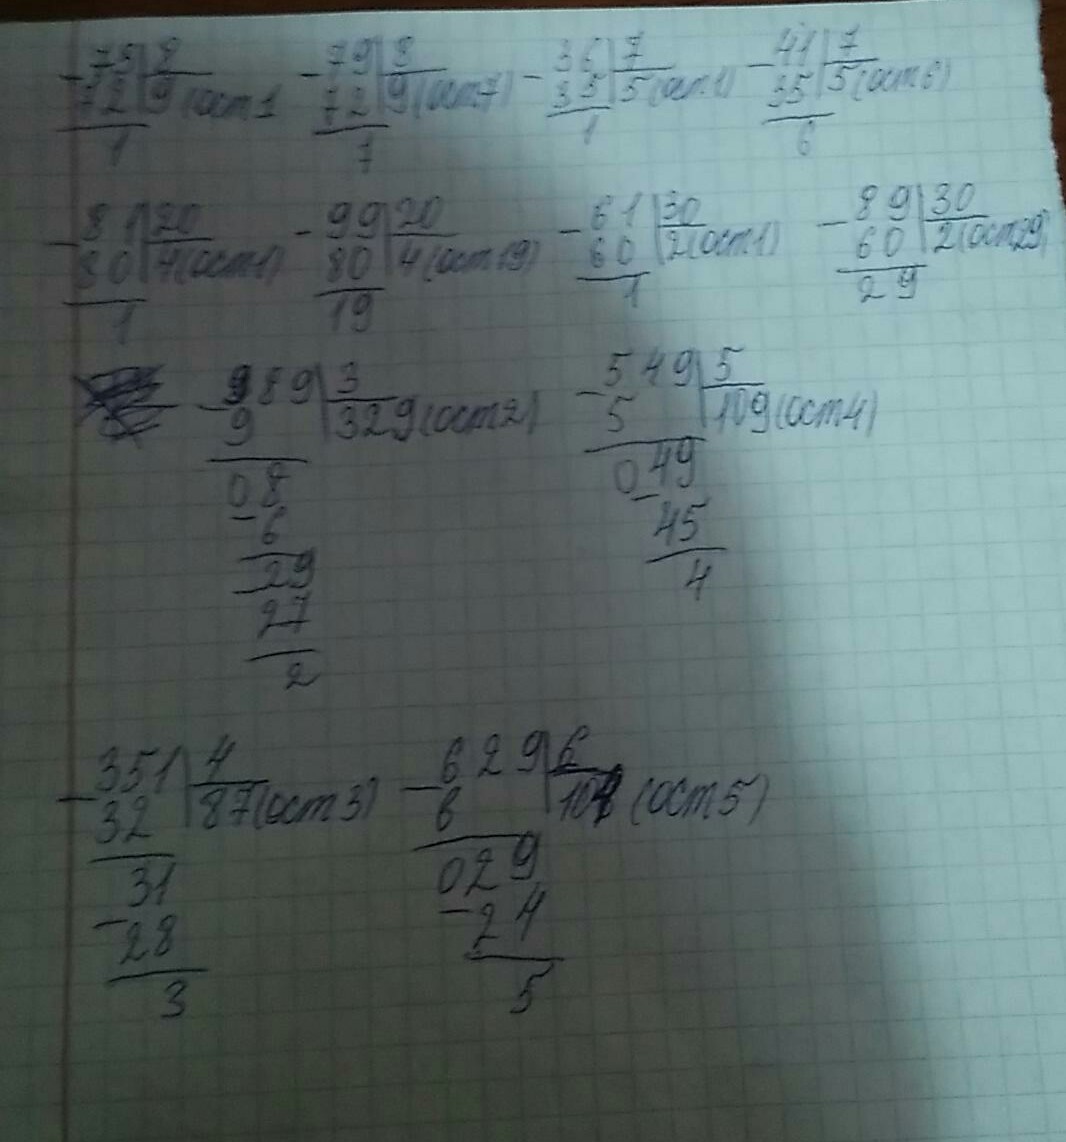 - 73 | 8 - 79 | 8 - 36 | 7 - 41 | 7
72 9 (ост 1 72 9 (ост 7) 35 5 (ост 1) 35 5 (ост 6)
1 7 1 6
- 81 | 20 - 99 | 20 - 61 | 30 - 89 | 30
80 4 (ост 1) 80 4 (ост 19) 60 2 (ост 1) 60 2 (ост 29)
1 19 1 29
- 989 | 3 - 549 | 5
9 329 (ост 2) 5 109 (ост 4)
08 049
- 6 - 45
29 4
27
2
- 351 | 4 - 629 | 6
32 87 (ост 3) 6 104 (ост 5)
31 029
- 28 - 24
3 5